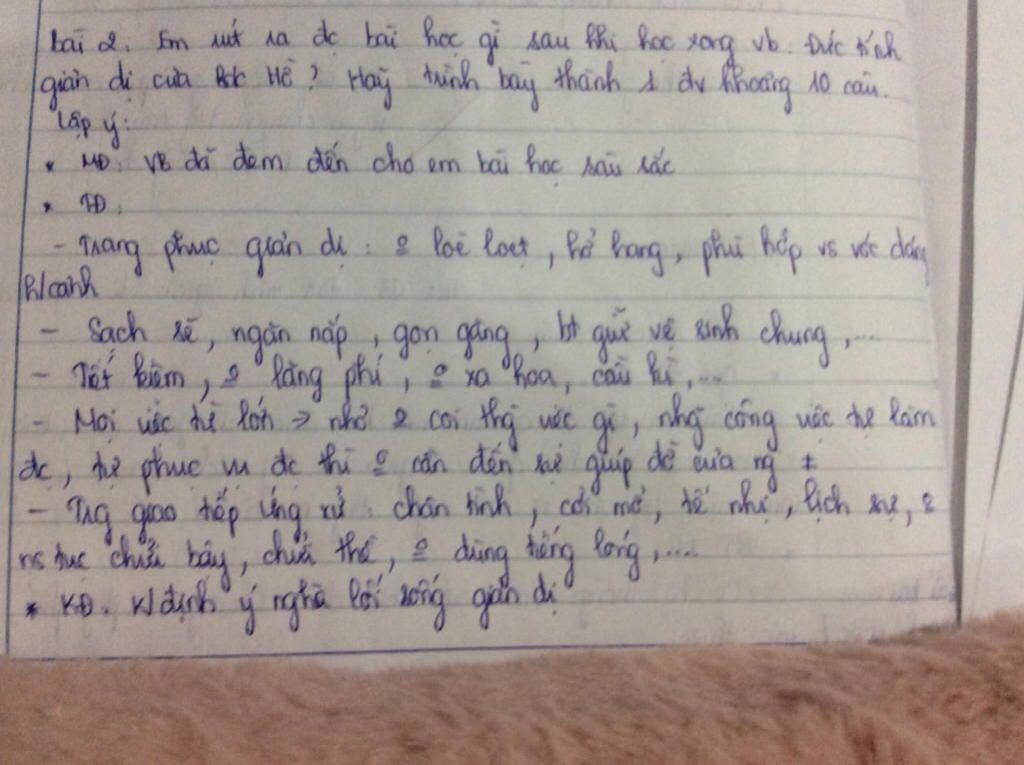 bài 2: Em rút ra đc bài học gì sau khi học xong vb Đức tính
giản dị của Bác Hồ? Hãy trình bày thành 1 đv khoảng 10 câu.
Lập ý:
* MĐ: VB đã đem đến cho em bài học sâu sắc
* TĐ:
- Trang phục giản dị: 0 loè loẹt, hở hang, phù hợp vs vóc dáng
h/cảnh
- Sạch sẽ, ngăn nắp, gọn gàng, bt giữ vệ sinh chung,...
- Tiết kiệm, 0 lãng phí, 0 xa hoa, cầu kì,...
- Mọi việc từ lớn → nhỏ 0 coi thg việc gì, nhg công việc tự làm
đc, tự phục vụ đc thì 0 cần đến sự giúp đỡ của ng ≠
- Trg giao tiếp ứng xử: chân tình, cởi mở, tế nhị, lịch sự, 0
ns tục chửi bậy, chửi thề, 0 dùng tiếng lóng,...
* KĐ: K/định ý nghĩa lối sống giản dị